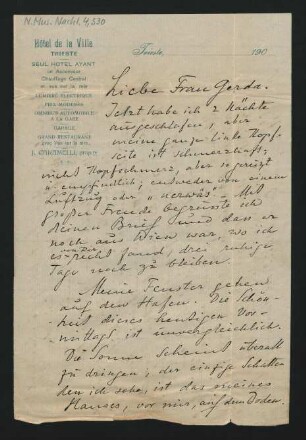 N. Mus. Nachl. 4,530
Hôtel de la Ville
TRIESTE
SEUL HÔTEL AYANT
un Ascenseur
Chauffage Central
LUMIÈRE ÉLECTRIQUE
PRIX MODÉRÉS
OMNIBUS AUTOMOBILE
A LA GARE
FAMILLE
GRAND RESTAURANT
Trieste, 190
Liebe Frau Gerda.
Jetzt habe ich 2 Nächte
ausgeschlafen, aber
meine ganze linke Kopf-
seite ist schmerzhaft;
nicht Kopfschmerz, aber so gereizt
u. empfindlich; entweder von einem
Luftzug oder "nervös". Mit
großer Freude begrüsste ich
Deinen Brief und dass er
noch aus Wien war, wo ich
es nicht fand, drei ruhige
Tage noch zu bleiben.
Meine Fenster gehen
auf den Hafen. Die Schön-
heit dieses heutigen Vor-
mittags ist unvergleichlich.
Die Sonne scheint überall
zu dringen; der einzige Schatten
den ich sehe, ist das meines
Hauses, vor mir, auf dem Boden.